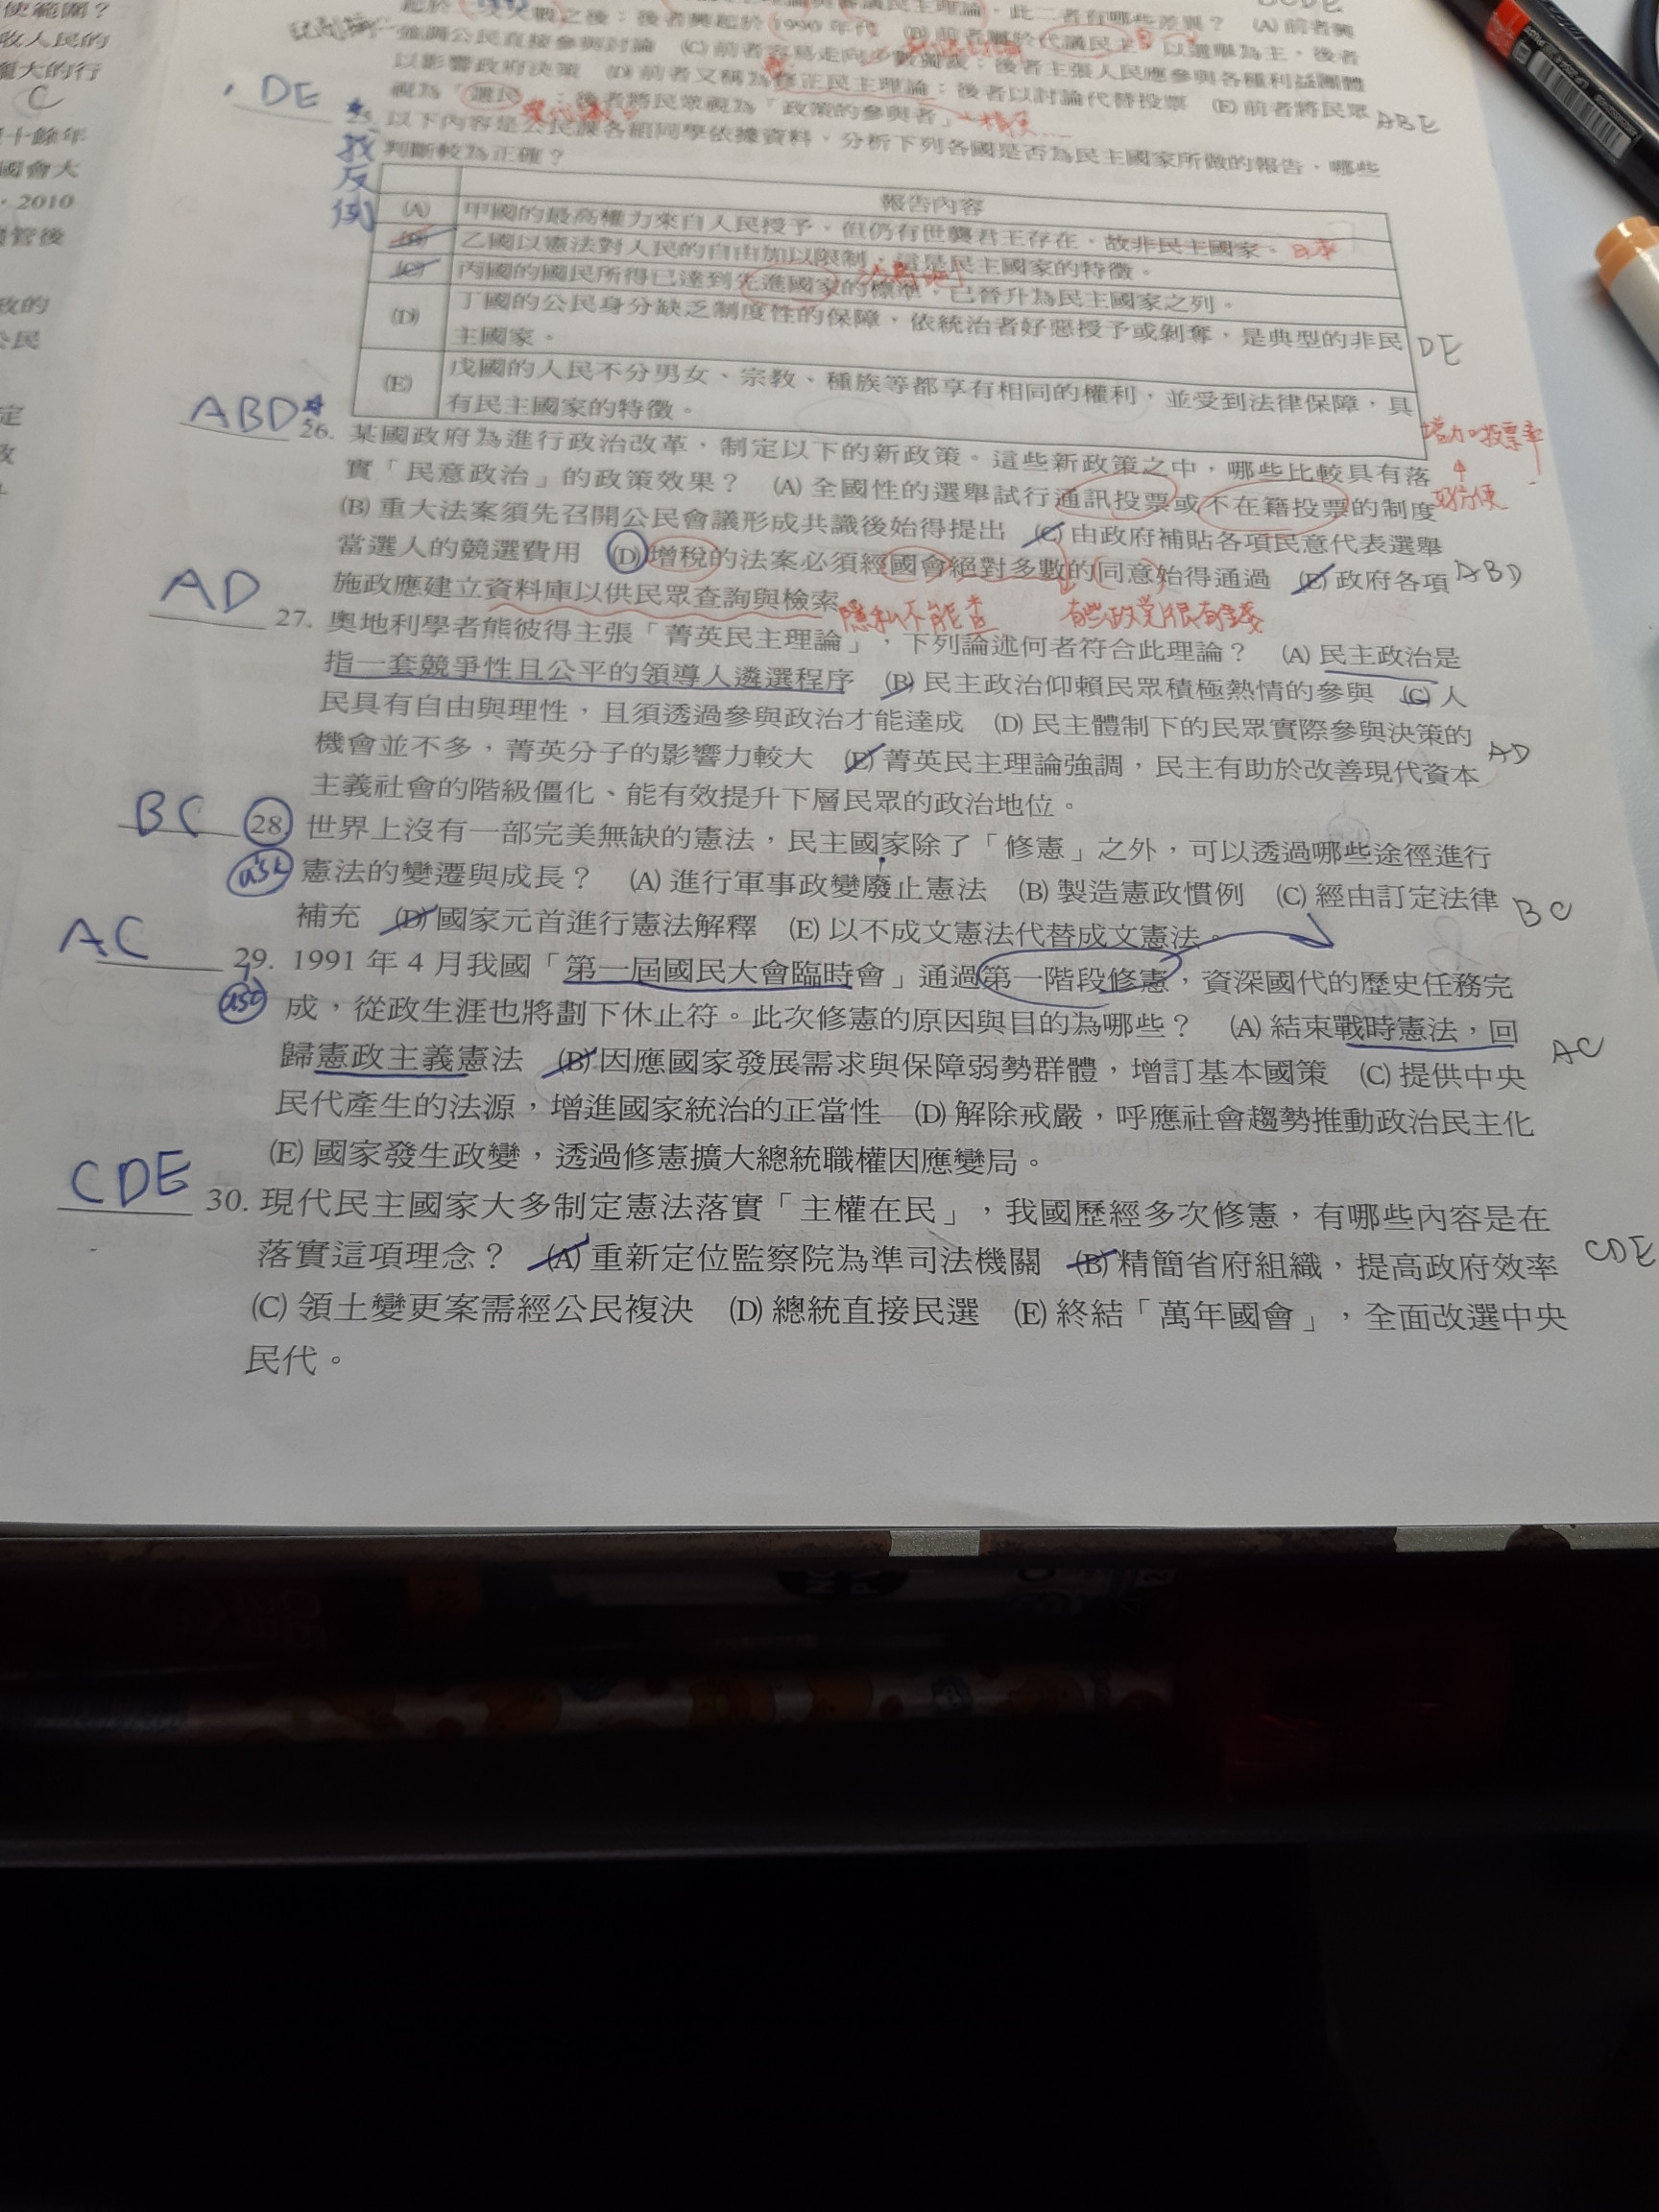 使範圍?
收人民的
龐大的行
C
十餘年
國會大
,2010
管後
政的
公民
定
政
起於一次大戰之後;後者興起於1990年代 (B)前者屬於代議民主,以選舉為主,後者
此二者有哪些差異? (A)前者興
強調公民直接參與討論 (C)前者容易走向多數獨裁;後者主張人民應參與各種利益團體
以影響政府決策 (D)前者又稱為修正民主理論;後者以討論代替投票 (E)前者將民眾
視為「選民」;後者將民眾視為「政策的參與者」
ABE
DE
25. 以下內容是公民課各組同學依據資料,分析下列各國是否為民主國家所做的報告,哪些
判斷較為正確?
找反例
報告內容
(A) 甲國的最高權力來自人民授予,但仍有世襲君王存在,故非民主國家。 日本
(B) 乙國以憲法對人民的自由加以限制,這是民主國家的特徵。
(C) 丙國的國民所得已達到先進國家的標準,已晉升為民主國家之列。
(D) 丁國的公民身分缺乏制度性的保障,依統治者好惡授予或剝奪,是典型的非民
主國家。
DE
(E) 戊國的人民不分男女、宗教、種族等都享有相同的權利,並受到法律保障,具
有民主國家的特徵。
ABD
26. 某國政府為進行政治改革,制定以下的新政策。這些新政策之中,哪些比較具有落
增加投票率
實「民意政治」的政策效果? (A)全國性的選舉試行通訊投票或不在籍投票的制度
(B)重大法案須先召開公民會議形成共識後始得提出 (C)由政府補貼各項民意代表選舉
當選人的競選費用 (D)增稅的法案必須經國會絕對多數的同意始得通過 (E)政府各項
ABD
施政應建立資料庫以供民眾查詢與檢索
隱私不能查
有些政黨很有錢
AD
27. 奧地利學者熊彼得主張「菁英民主理論」,下列論述何者符合此理論? (A)民主政治是
指一套競爭性且公平的領導人遴選程序 (B)民主政治仰賴民眾積極熱情的參與 (C)人
民具有自由與理性,且須透過參與政治才能達成 (D)民主體制下的民眾實際參與決策的
機會並不多,菁英分子的影響力較大 (E)菁英民主理論強調,民主有助於改善現代資本
AD
主義社會的階級僵化、能有效提升下層民眾的政治地位。
BC
28. 世界上沒有一部完美無缺的憲法,民主國家除了「修憲」之外,可以透過哪些途徑進行
ask
憲法的變遷與成長? (A)進行軍事政變廢止憲法 (B)製造憲政慣例 (C)經由訂定法律
補充 (D)國家元首進行憲法解釋 (E)以不成文憲法代替成文憲法。
BC
AC
29. 1991年4月我國「第一屆國民大會臨時會」通過第一階段修憲,資深國代的歷史任務完
ask
成,從政生涯也將劃下休止符。此次修憲的原因與目的為哪些? (A)結束戰時憲法,回
歸憲政主義憲法 (B)因應國家發展需求與保障弱勢群體,增訂基本國策 (C)提供中央
AC
民代產生的法源,增進國家統治的正當性 (D)解除戒嚴,呼應社會趨勢推動政治民主化
(E)國家發生政變,透過修憲擴大總統職權因應變局。
CDE
30. 現代民主國家大多制定憲法落實「主權在民」,我國歷經多次修憲,有哪些內容是在
落實這項理念? (A)重新定位監察院為準司法機關 (B)精簡省府組織,提高政府效率
CDE
(C)領土變更案需經公民複決 (D)總統直接民選 (E)終結「萬年國會」,全面改選中央
民代。